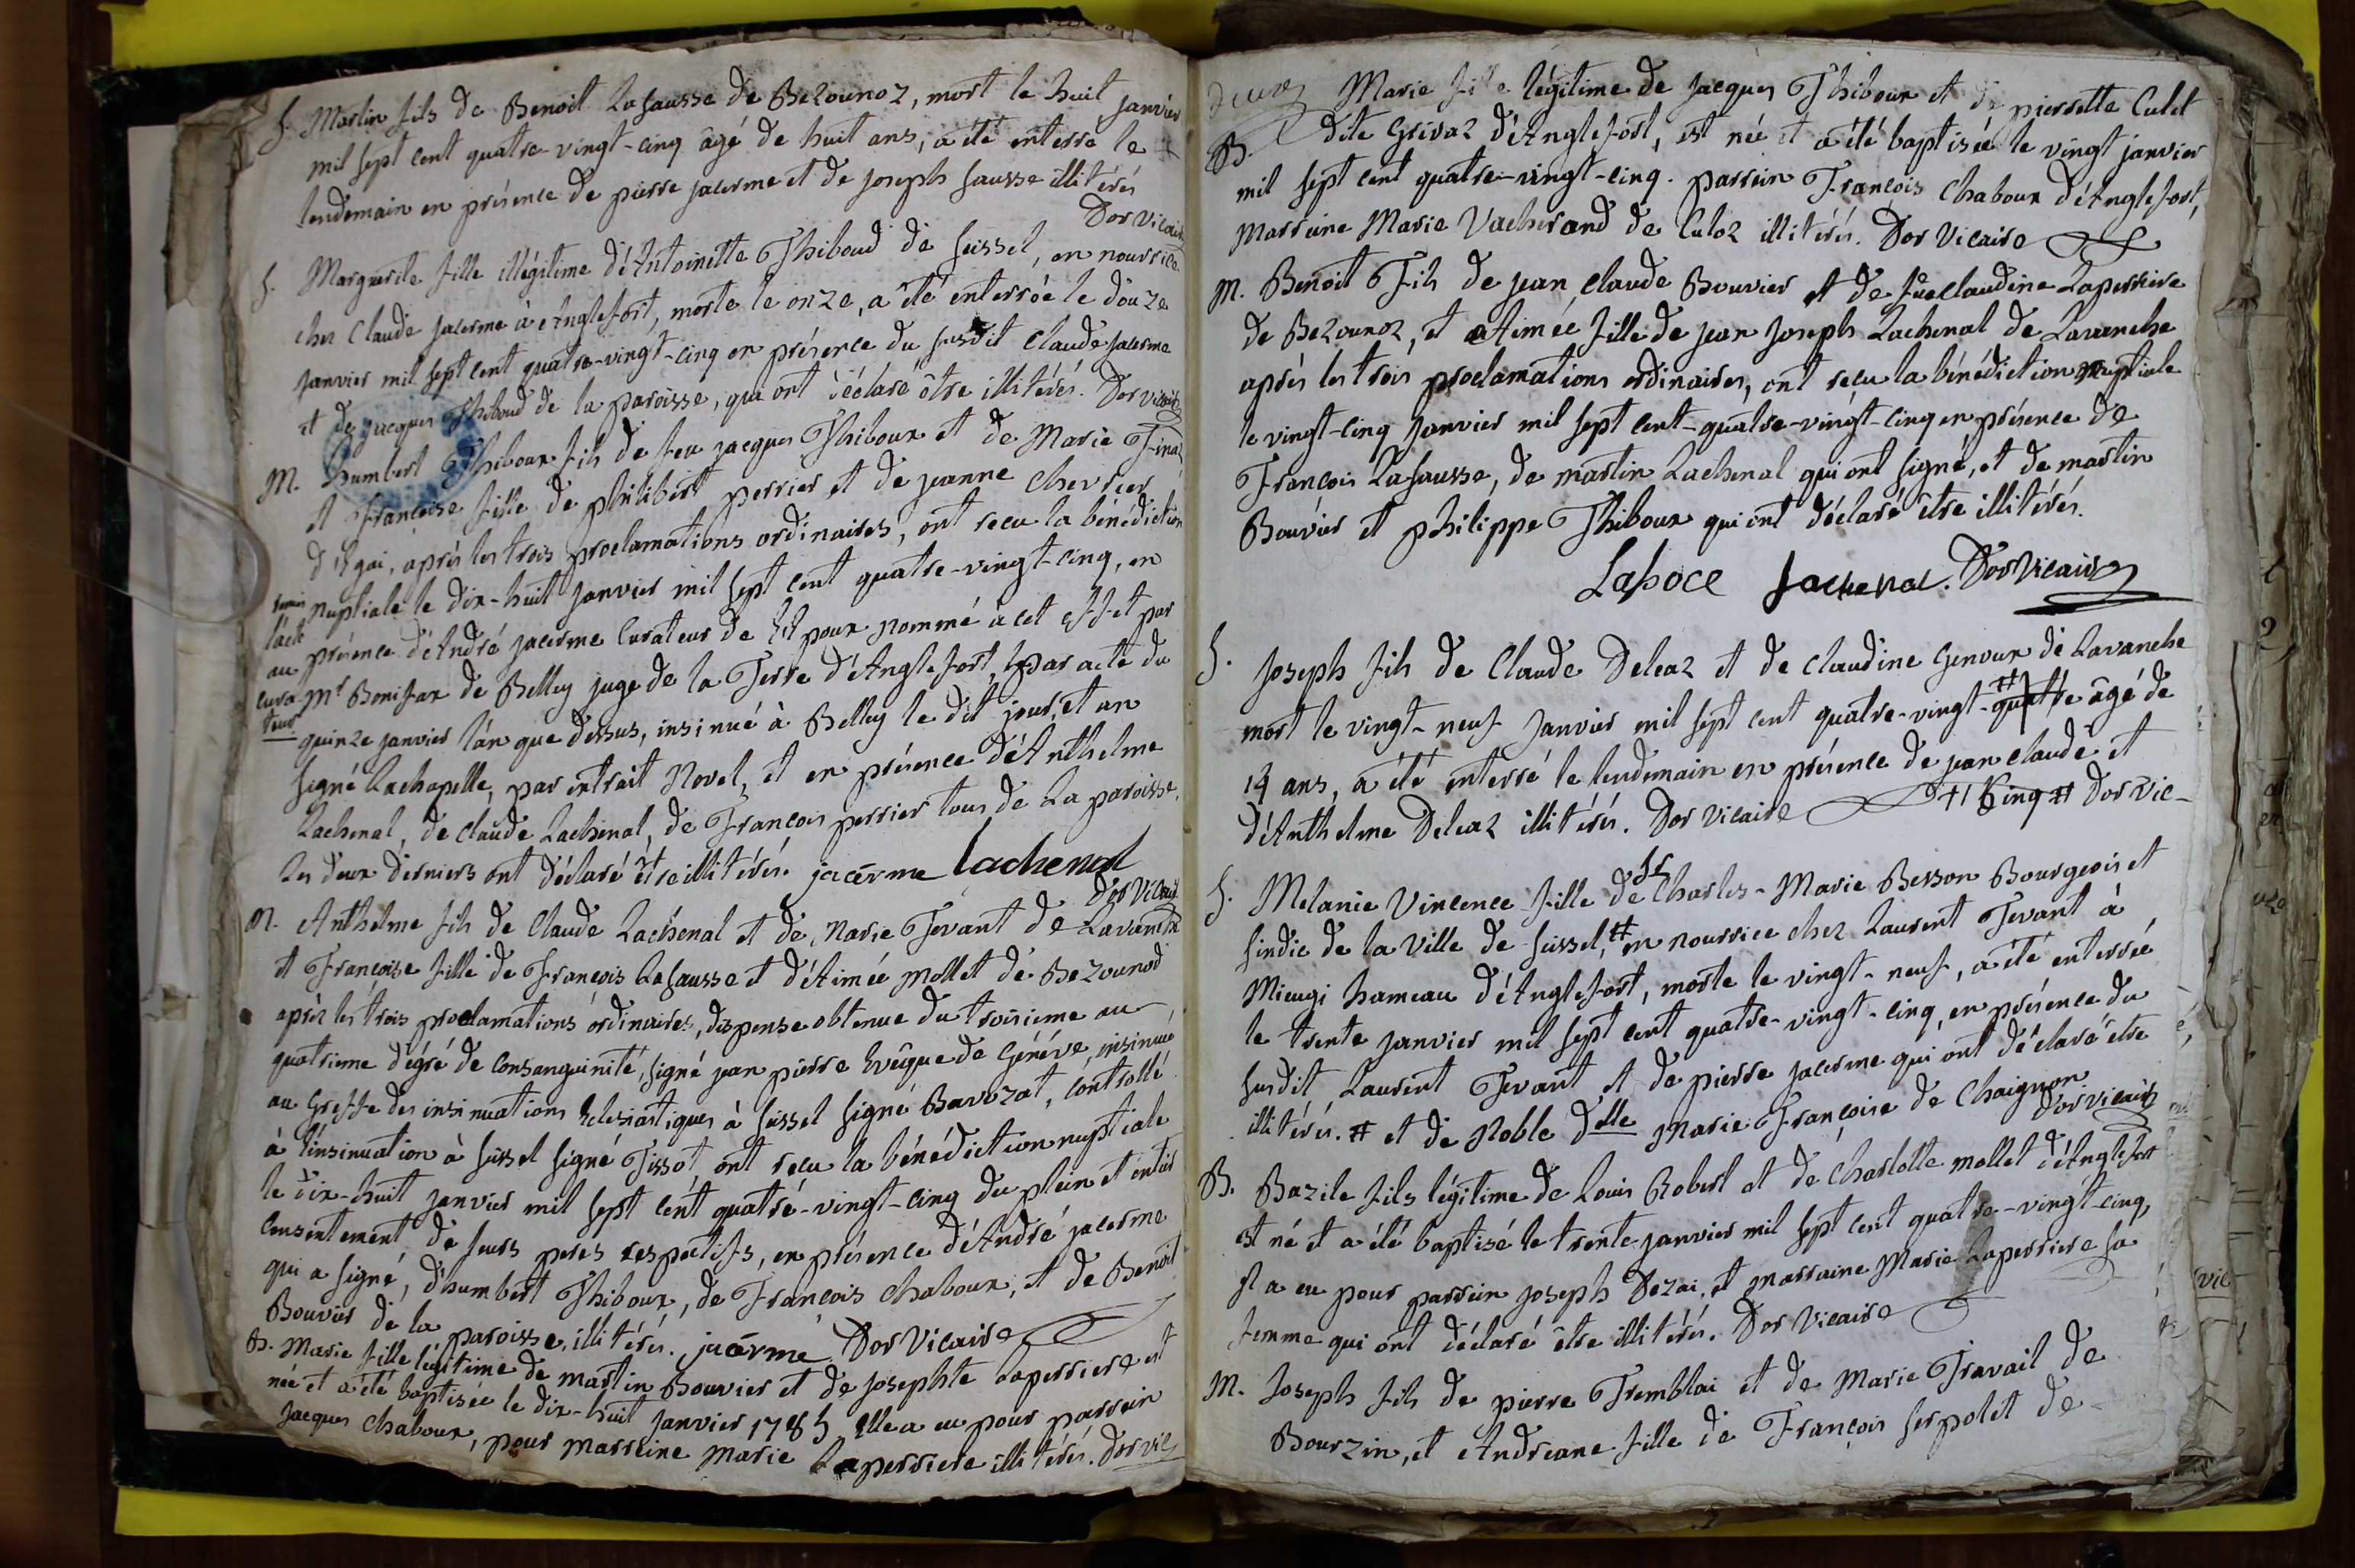 S. Martin fils de Benoit Lafausse de Bezounoz, mort le huit janvier
mil sept cent quatre-vingt-cinq âgé de huit ans, a été enterré le
lendemain en présence de pierre jacerme et de joseph fausse illitérés
Dor Vicaire
S. Marguerite fille illégitime d'Antoinette Thiboud de seissel, en nourrice
chez Claude jacerme à Anglefort, morte le onze, a été enterrée le douze
janvier mil sept cent quatre-vingt-cinq en présence du susdit Claude jacerme
et de jacques Thiboud de la paroisse, qui ont déclaré être illitérés. Dor vicaire
M. humbert Thiboux fils de feu jacques Thiboux et de Marie Finaz
et Françoise fille de philibert perrier et de jeanne Chevrier
d'Egai, après les trois proclamations ordinaires, ont recu la bénédiction
nuptiale le dix-huit janvier mil sept cent quatre-vingt-cinq, en
l'acte
présence d'André jacerme Curateur de l'Epoux nommé à cet effet par
au
cura
teur
Mr Bonifax de Belley juge de la Terre d'Anglefort, par acte du
quinze janvier l'an que dessus, insinué à Belley le dit jour, et an
signé Lachapelle, par extrait Novel, et en présence d'Anthelme
Lachenal, de Claude Lachenal, de Francois perrier tous de La paroisse,
Les deux derniers ont déclaré être illitérés. jacerme Lachenal
Dor Vicaire
M. Anthelme fils de Claude Lachenal et de Marie Tevant de Lavanche
et Françoise fille de François Lafausse et d'Aimée Mollet de Bezounod
après les trois proclamations ordinaires, dispense obtenue du troisieme au
quatrieme dégré de Consanguinité, signé jean pierre Evêque de Généve, insinué
au Greffe des insinuations Eclesiastiques à seissel signé Bavozat, contrôllé
à l'insinuation à seissel signé Tissot, ont recu la bénédiction nuptiale
le dix-huit janvier mil sept cent quatre-vingt-cinq du plein et entier
Consentement de leurs peres respectifs, en présence d'André jacerme
qui a signé, d'humbert Thiboux, de François Chaboux, et de Benoit
Bouvier de la paroisse, illitérés. jacerme Dor Vicaire
B. Marie fille légitime de martin Bouvier et de josephte Laperriere est
née et a été baptisée le dix-huit janvier 1785 Elle a eu pour parrein
jacques Chaboux, pour marreine Marie Laperriere illitérés. Dor vic
Marie fille légitime de jacques Thiboux et de pierrette Culet
B. dite Grivaz d'Anglefort, est née et a été baptisée le vingt janvier
mil sept cent quatre-vingt-cinq. parrein François Chaboux d'Anglefort,
marreine Marie Vacherand de Culoz illitérés. Dor Vicaire
M. Benoit Fils de jean claude Bouvier et de fue Claudine Laperriere
de Bezounoz, et Aimée fille de jean joseph Lachenal de Lavanche
après les trois proclamations ordinaires, ont recu la bénédiction nuptiale
le vingt-cinq janvier mil sept cent-quatre-vingt-cinq en présence de
François Lafausse, de martin Lachenal qui ont signé, et de martin
Bouvier et philippe Thiboux qui ont déclaré être illitérés.
Lafoce Lachenal. Dor Vicaire
S. joseph fils de Claude Deleaz et de Claudine Genoux de Lavanche
mort le vingt-neuf janvier mil sept cent quatre-vingt-quatre # âgé de
14 ans, a été enterré le lendemain en présence de jean claude et
d'Anthelme Deleaz illitérés. Dor Vicaire # Cinq # Dor Vic-
S. Melanie Vincence fille de Sr Charles-Marie Besson Bourgeois et
sindic de la Ville de seissel, # en nourrice chez Laurent Tevant à
Mieugi hameau d'Anglefort, morte le vingt-neuf, a été enterrée
le trente janvier mil sept cent quatre-vingt-cinq, en présence du
susdit Laurent Tevant et de pierre jacerme qui ont déclaré être
illitérés. # et de Noble Dlle Marie Françoise de Chaignon
Dor vicaire
B. Bazile fils légitime de Louis Robert et de Charlotte mollet d'Anglefort
est né et a été baptisé le trente janvier mil sept cent quatre-vingt-cinq,
il a eu pour parrein joseph Dezai, et marraine Marie Laperriere sa
femme qui ont déclaré être illitérés. Dor Vicaire
M. Joseph fils de pierre Tremblai et de Marie Travail de
Bourzin, et Andreane fille de François serpolet de